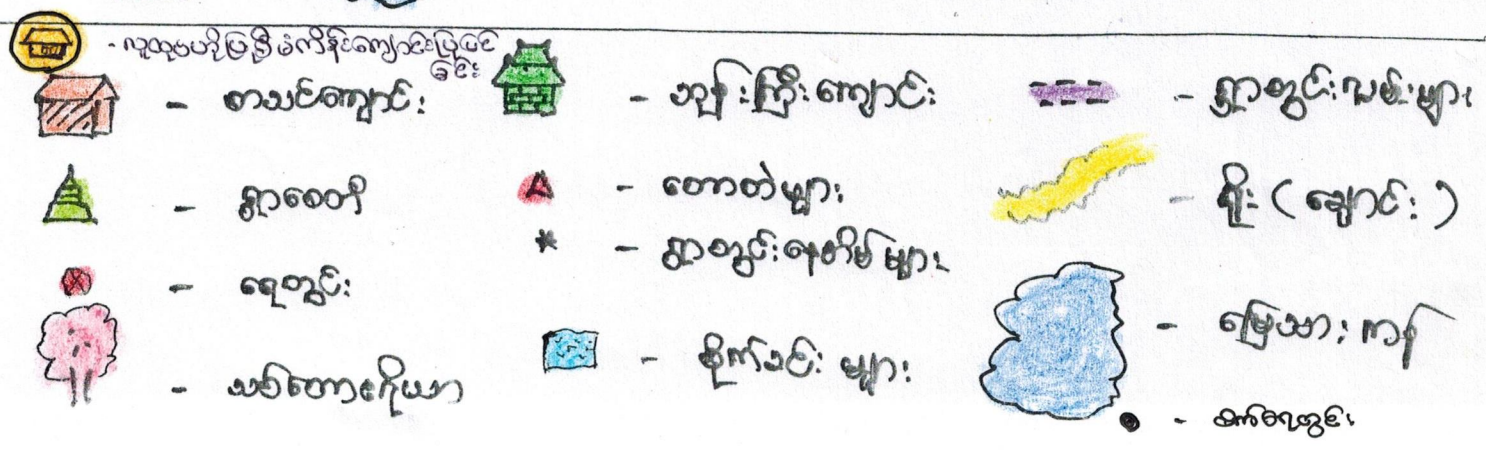 - လူထုဗဟိုပြုစီမံကိန်းကျောင်းပြုပြင်
ခင်း
- စာသင်ကျောင်း
- ရွာစေတီ
- ရေတွင်း
- သစ်တောဧရိယာ
- ဘုန်းကြီးကျောင်း
- တောတဲများ
- ရွာတွင်းနေအိမ်များ
- စိုက်ခင်းများ
- ရွာတွင်းလမ်းများ
- ရိုး (ချောင်း)
- မြေသားကန်
- စက်ရေတွင်း